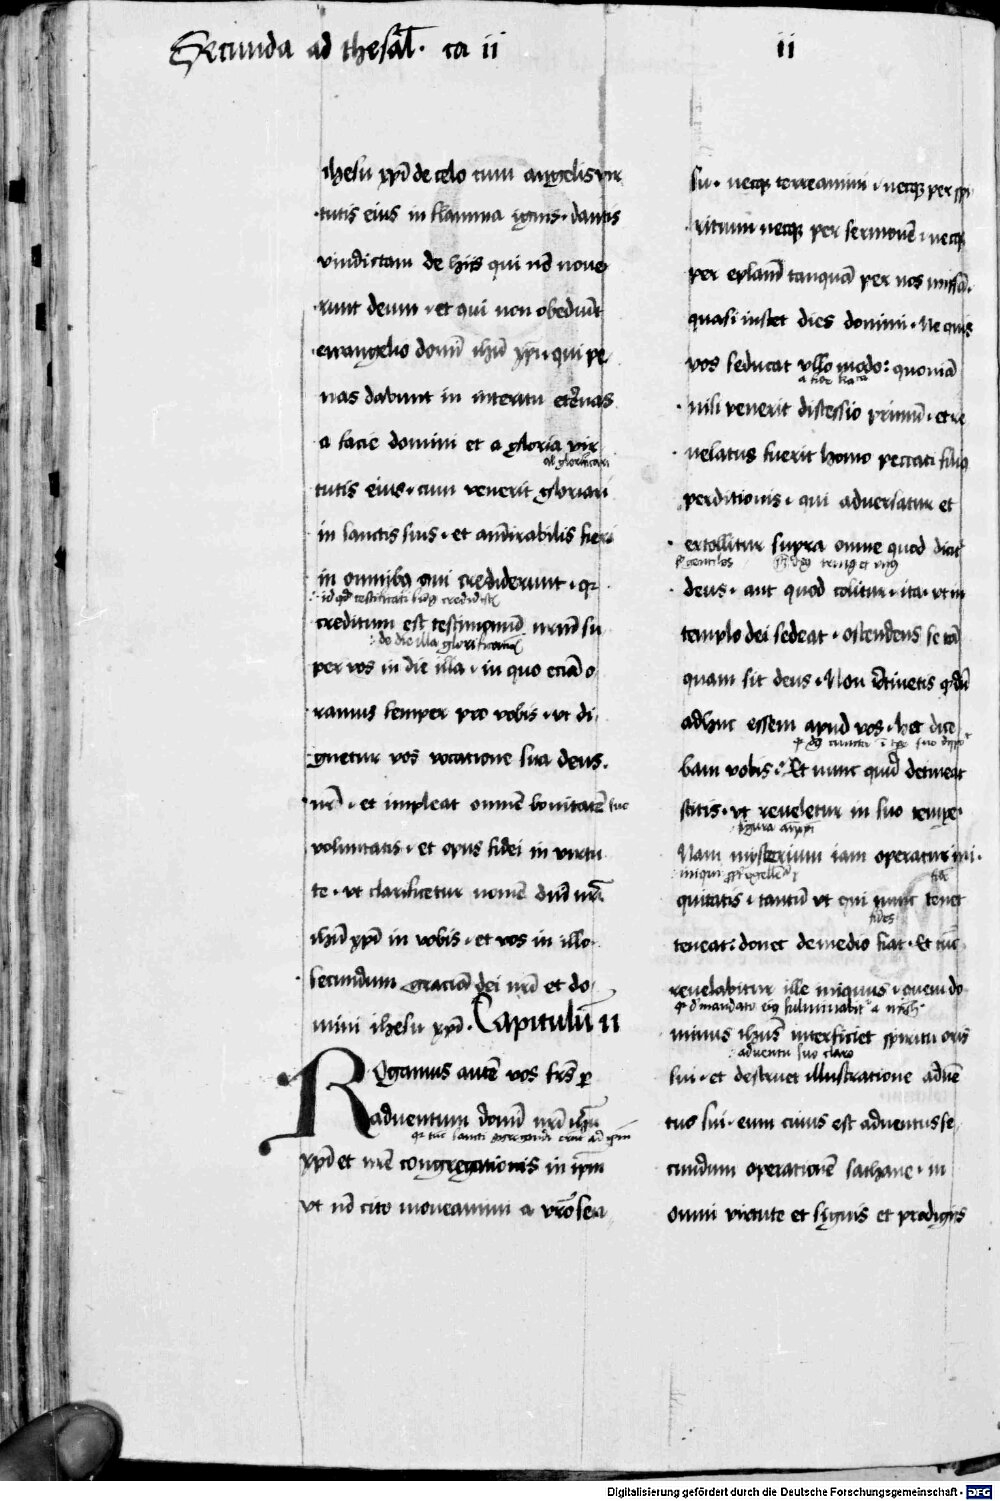 Secunda ad thesal. ca ii
ii
ihesu xpī de celo cum angelis vir
tutis eius in flamma ignis. dantis
vindictam de his qui nō noue
runt deum. et qui non obediūt
ewangelio domī ihū xpi. qui pe
nas dabunt in interitu et̄nas
a facie domini et a gloria vir
al glorificari
tutis eius. cum venerit gloriari
in sanctis suis. et am̄irabilis fieri
in omnibꝫ qui crediderunt. qr
creditum est testimoniū nr̄m su
: de die illa
per vos in die illa. in quo eciā o
ramus semper pro vobis. vt di
gnetur vos vocatione sua deus.
nr̄. et impleat omnē bonitatē sue
voluntatis. et opus fidei in virtu
te. vt clarificetur nomē dnī nr̄i
ihū xpī in vobis. et vos in illo.
secundum graciā dei nr̄i et do
mini ihesu xpī. Capitulū ii
ROgamus autē vos frs̄ ꝑ
aduentum domī nr̄i ihū
qr tūc sancti
xpī et nr̄e congregationis in ip̄m
vt nō cito moueamini a vr̄o sen
su. neqꝫ terreamini. neqꝫ per spi
ritum neqꝫ per sermonē. neqꝫ
per ep̄lam tanquā per nos missā.
quasi instet dies domini. Ne quis
vos seducat vllo modo: quoniā
nisi venerit discessio primū. et re
uelatus fuerit homo peccati filiꝰ
perditionis. qui aduersatur et
extollitur supra omne quod dicit̄
deus. aut quod colitur. ita. vt in
templo dei sedeat. ostendens se tā
quam sit deus. Non r̄tinetis qd̄ cū
adhuc essem apud vos. hec dice
bam vobis. Et nunc quid detineat
scitis. vt reueletur in suo tempe.
figura
Nam misterium iam operatur ini.
quitatis. tantū vt qui nunc tenet
fides
teneat: donec de medio fiat. Et tūc
reuelabitur ille iniquus. quem do
minus ihūs interficiet spiritu oris
: aduentu suo claro
sui. et destruet illustratione aduē
tus sui. eum cuius est aduentus se
cundum operationē sathane. in
omni virtute et signis et prodigiis
Digitalisierung gefördert durch die Deutsche Forschungsgemeinschaft - DFG